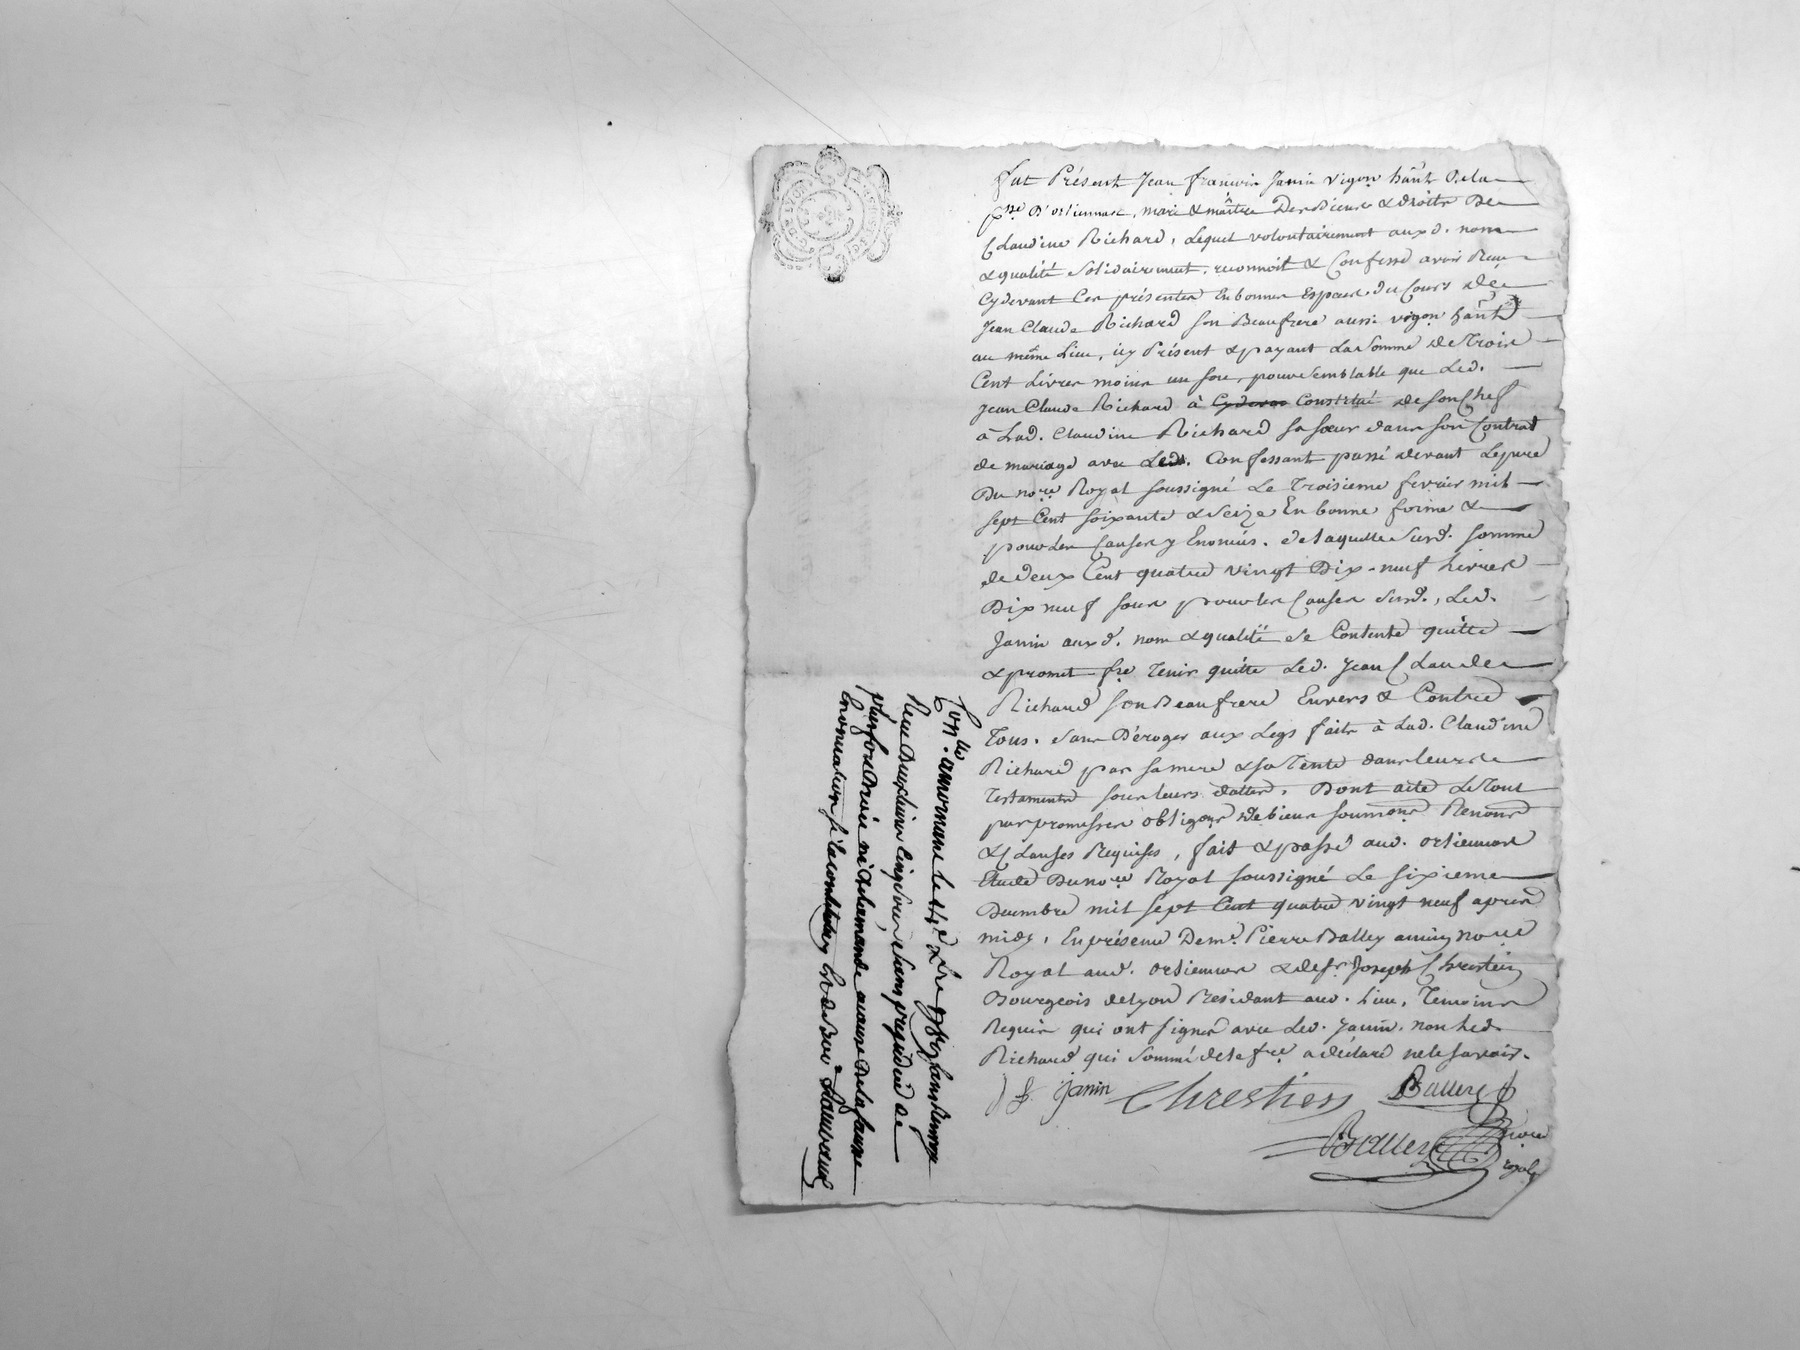 fut Présent Jean francois Janin vigon hânt dela
psse D'orliennas, mari & maître Des Biens & droits De
Claudine Richard, Lequel volontairement auxd. nom
& qualité solidairement, reconnoit & Confesse avoir Recu
Cydevant Ces présentes En bonnes Espèces du Cours de
Jean Claude Richard son Beaufrere aussi vigon hânt
au même Lieu, icy Présent & payant La Somme de Trois
Cent Livres moins un sou, pour semblable que Led.
Jean Claude Richard à Constitué de son Chef
à Lad. Claudine Richard sa sœur dans son Contrat
de mariage avec Led. Confessant passé devant
Du nore Royal soussigné Le Troisieme fevrier mil
sept Cent soixante & seize En bonne forme &
pour Les Causes y Enoncées. de laquelle Susd. somme
de deux Cent quatre vingt Dix-neuf Livres
Dix neuf sous pour les Causes Susd., Led.
Janin auxd. nom & qualité se Contente quitte
& promet fre Tenir quitte Led. Jean Claude
Richard son Beaufrere Envers & Contre
Tous. sans Déroger aux Legs faits à Lad. Claudine
Richard par sa mere & sa Tente dans leurs
Testaments sous leurs dattes. Dont acte Le Tout
par promesses obligons de biens soumons Renons
& Clauses Requises, fait & passé aud. orliennas
Etude Du nore Royal soussigné Le sixieme
Decembre mil sept Cent quatre vingt neuf apres
midy, En présence De me. Pierre Balley ancien nore
Royal aud. orliennas & de sr. Joseph Chrestien
Bourgeois de Lyon Residant aud. Lieu, Temoins
Requis qui ont signé avec Led. Janin. non Led
Richard qui sommé de le fre a déclaré ne le savoir.
J f. janin Chrestien Balley
Balley nore
royal
Conlle. a mornant le 14e. Xbre 1789 sans Renvoy
Recu Deux livres Cinq sous sans prejudice de
plus fort Droit ni de lamande a cause de la fausse